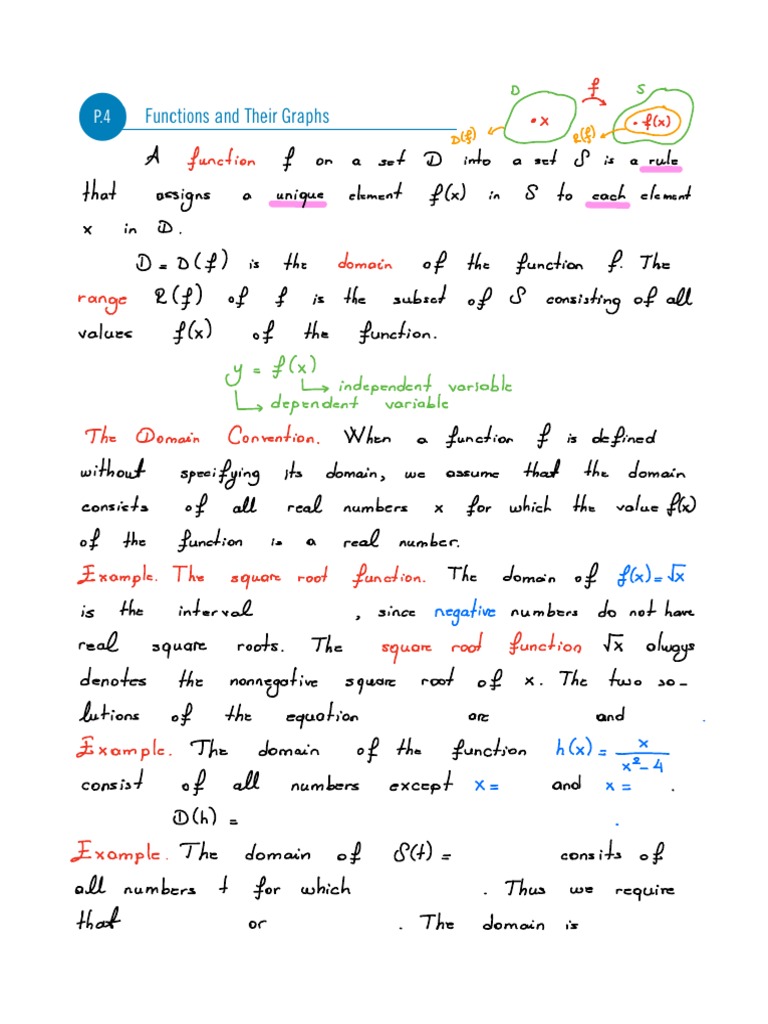 P.4 Functions and Their Graphs
D f S
x f(x)
D(f) R(f)
A function f on a set D into a set S is a rule
that assigns a unique element f(x) in S to each element
x in D.
D = D(f) is the domain of the function f. The
range R(f) of f is the subset of S consisting of all
values f(x) of the function.
y = f(x)
independent variable
dependent variable
The Domain Convention. When a function f is defined
without specifying its domain, we assume that the domain
consists of all real numbers x for which the value f(x)
of the function is a real number.
Example. The square root function. The domain of f(x)=√x
is the interval , since negative numbers do not have
real square roots. The square root function √x always
denotes the nonnegative square root of x. The two so-
lutions of the equation are and .
Example. The domain of the function h(x) = x/(x²-4)
consist of all numbers except x= and x= .
D(h) = .
Example. The domain of S(t) = consits of
all numbers t for which . Thus we require
that or . The domain is